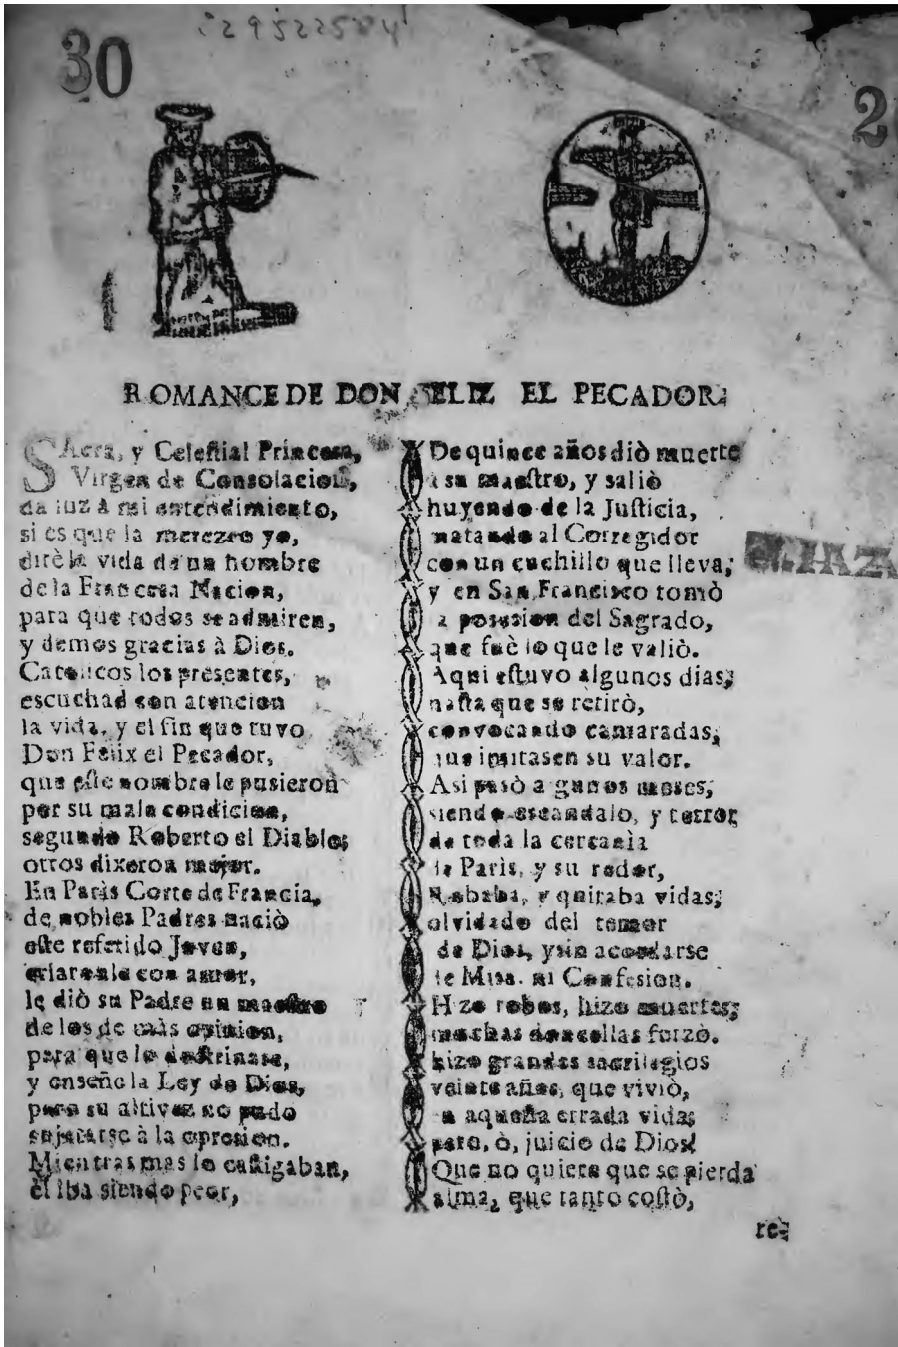 30
i29522584
2
1
ROMANCE DE DON FELIZ EL PECADOR.
SAcra, y Celestial Princesa,
Virgen de Consolacion,
da luz à mi entendimiento,
si es que la merezco yo,
dirè la vida de un hombre
de la Francesa Nacion,
para que todos se admiren,
y demos gracias à Dios.
Catolicos los presentes,
escuchad con atencion
la vida, y el fin que tuvo
Don Felix el Pecador,
que este nombre le pusieron
por su mala condicion,
segundo Roberto el Diablo;
otros dixeron mejor.
En Paris Corte de Francia,
de nobles Padres naciò
este referido Joven,
criaronle con amor,
le diò su Padre un maestro
de los de mas opinion,
para que lo doctrinase,
y enseñe la Ley de Dios,
pero su altivez no pudo
sujetarse à la opresion.
Mientras mas lo castigaban,
èl iba siendo peor,
De quince años diò muerte
à su maestro, y saliò
huyendo de la Justicia,
matando al Corregidor
con un cuchillo que lleva;
y en San Francisco tomò
la posesion del Sagrado,
que fuè lo que le valiò.
Aqui estuvo algunos dias;
hasta que se retirò,
convocando camaradas,
que imitasen su valor.
Asi pasò algunos meses,
siendo escandalo, y terror
de toda la cercania
de Paris, y su redor,
Robaba, y quitaba vidas;
olvidado del temor
de Dios, y sin acordarse
de Misa, ni Confesion.
Hizo robos, hizo muertes;
muchas doncellas forzò.
hizo grandes sacrilegios
veinte años, que viviò,
en aquella errada vida;
pero, ò, juicio de Dios!
Que no quiere que se pierda
alma, que tanto costò,
re-